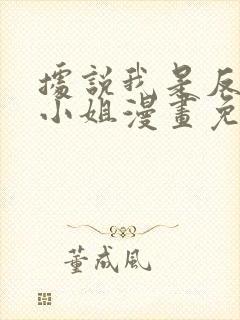 據說我是反
小姐漫畫免
董成風